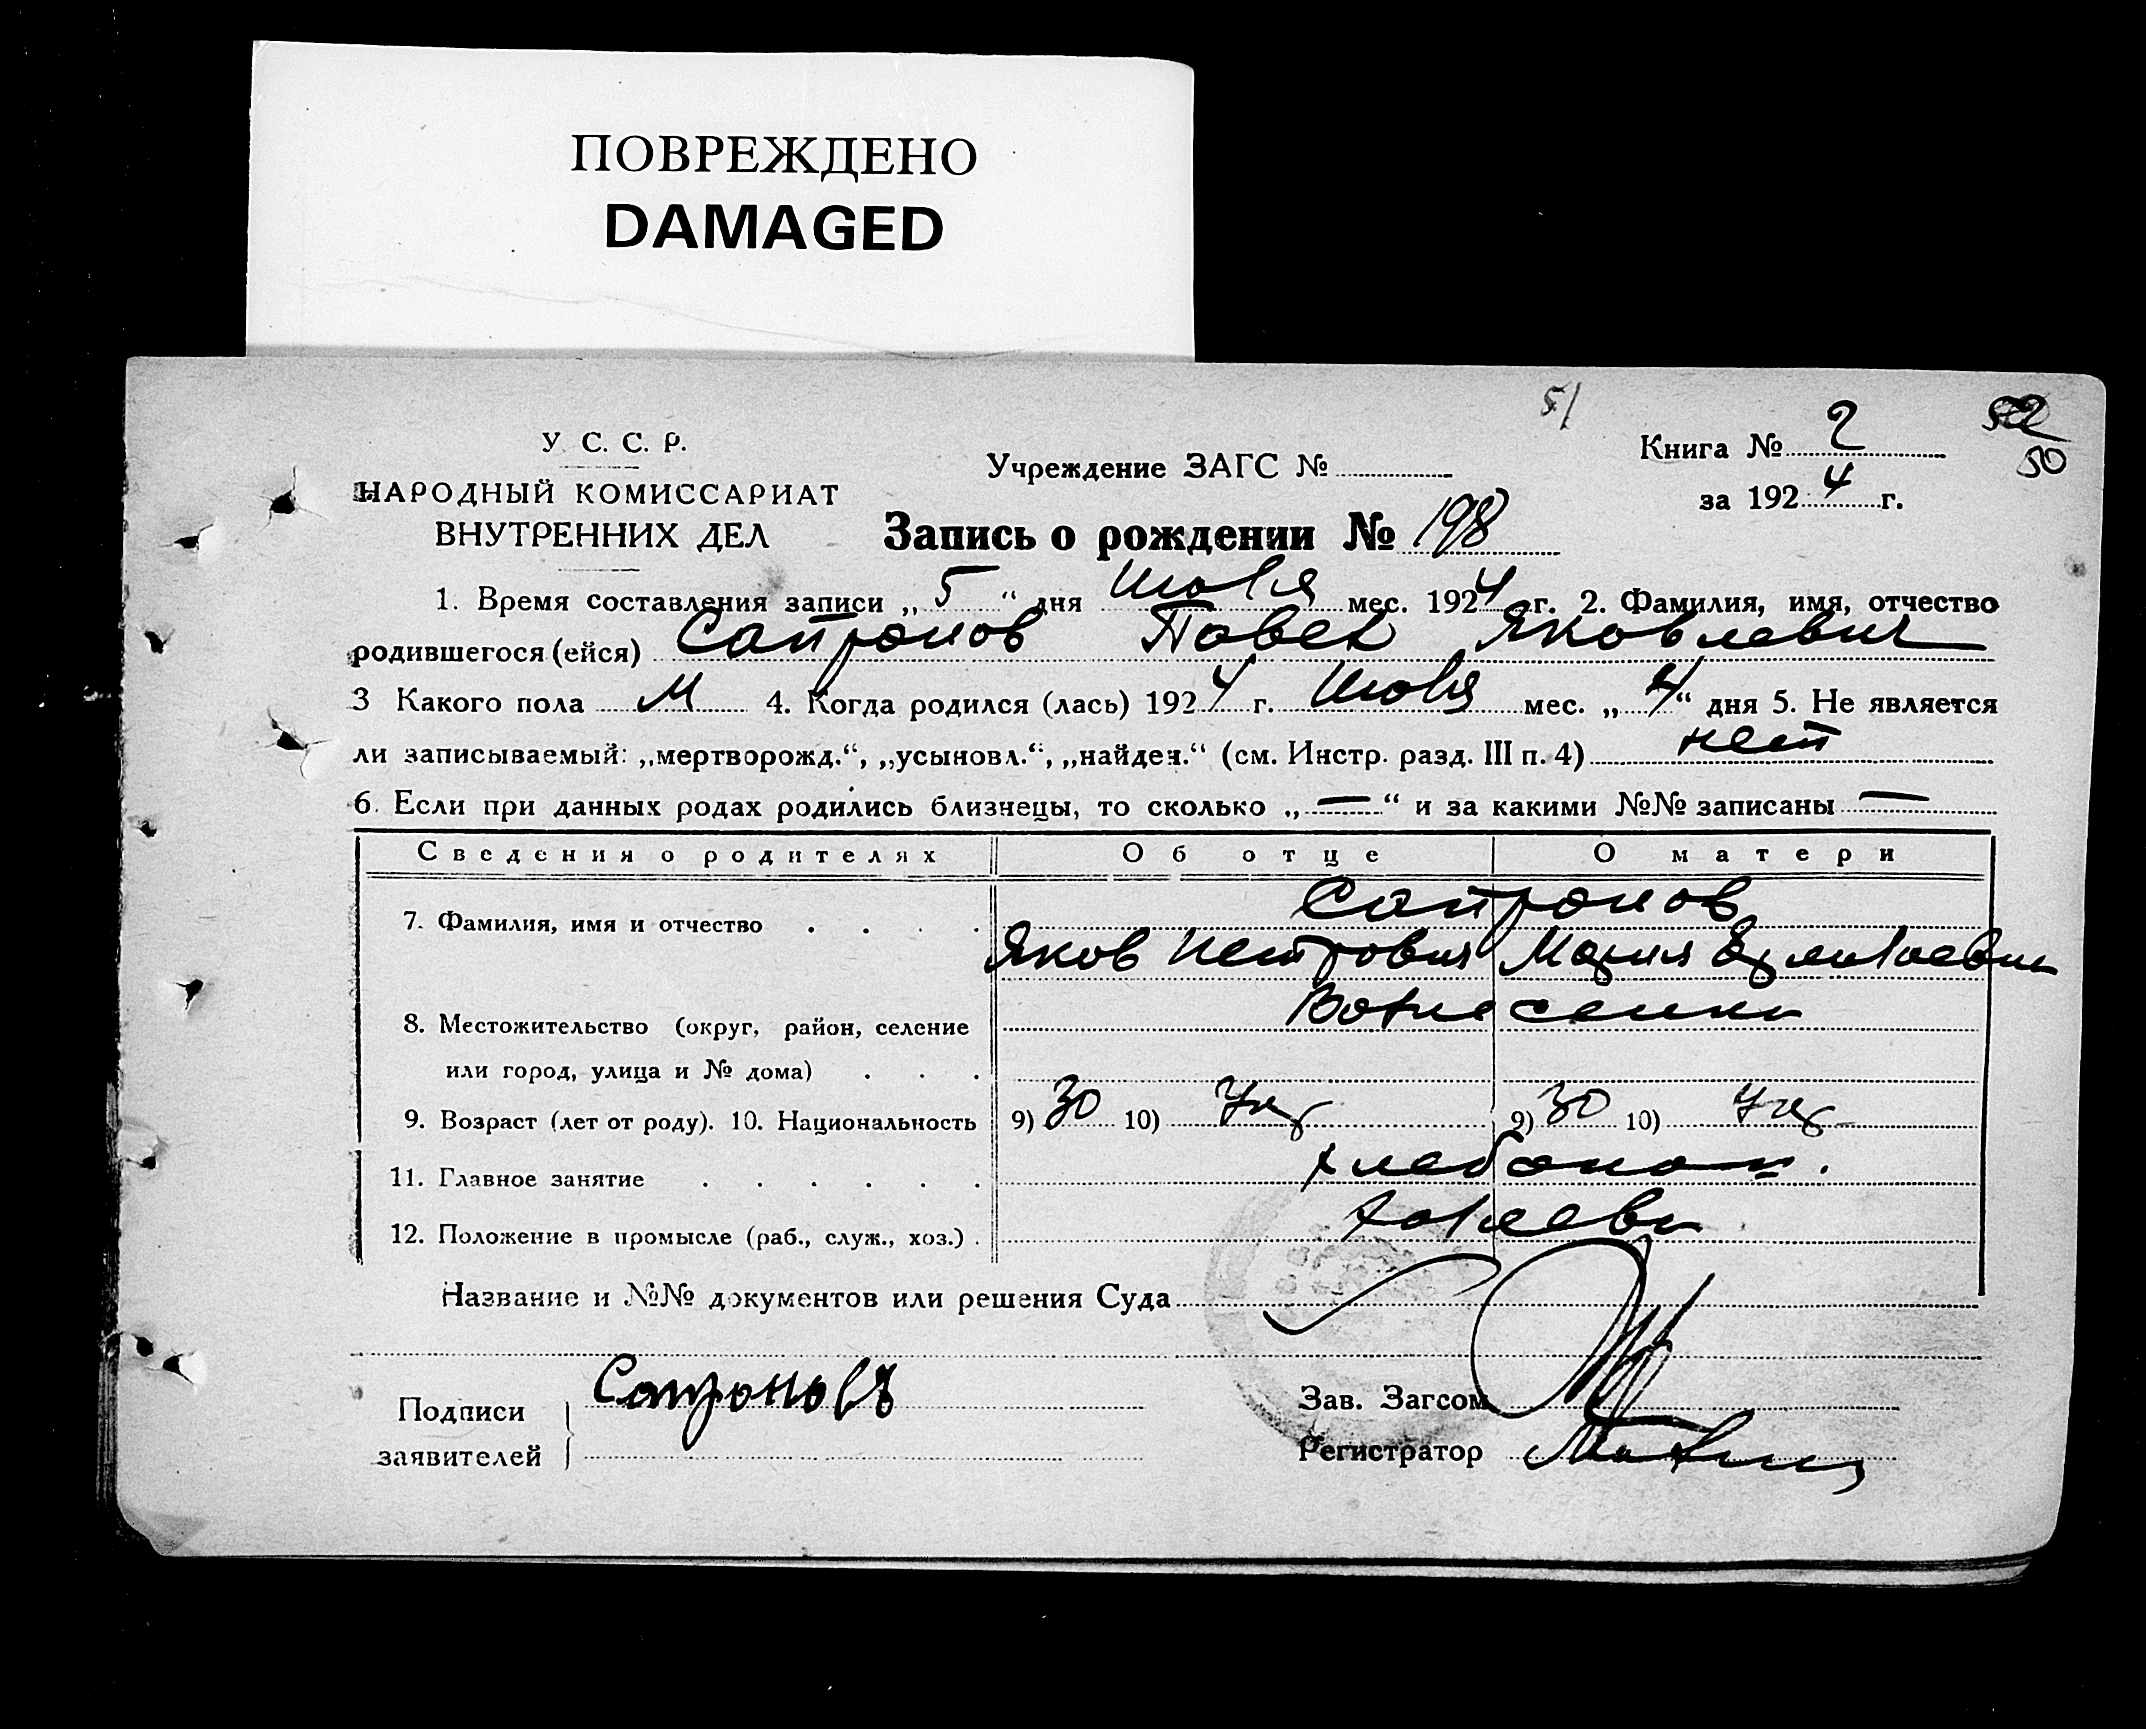 ПОВРЕЖДЕНО
DAMAGED
51
52
50
У. С. С. Р.
НАРОДНЫЙ КОМИССАРИАТ
ВНУТРЕННИХ ДЕЛ
Учреждение ЗАГС №
Книга № 2
за 1924 г.
Запись о рождении № 198
1. Время составления записи „5“ дня Июля мес. 1924 г. 2. Фамилия, имя, отчество
родившегося (ейся) Сапронов Павел Яковлевич
3 Какого пола М 4. Когда родился (лась) 1924 г. Июля мес. „4“ дня 5. Не является
ли записываемый: „мертворожд.“, „усыновл.“, „найден.“ (см. Инстр. разд. III п. 4) нет
6. Если при данных родах родились близнецы, то сколько „—“ и за какими №№ записаны —
Сведения о родителях Об отце О матери
7. Фамилия, имя и отчество Сапронов
Яков Петрович Мария
8. Местожительство (округ, район, селение Вознесенки
или город, улица и № дома)
9. Возраст (лет от роду). 10. Национальность 9) 30 10) Укр 9) 30 10) Укр
11. Главное занятие хлебопаш.
12. Положение в промысле (раб., служ., хоз.) хозяева
Название и №№ документов или решения Суда
Подписи заявителей Сапроновъ
Зав. Загсом
Регистратор